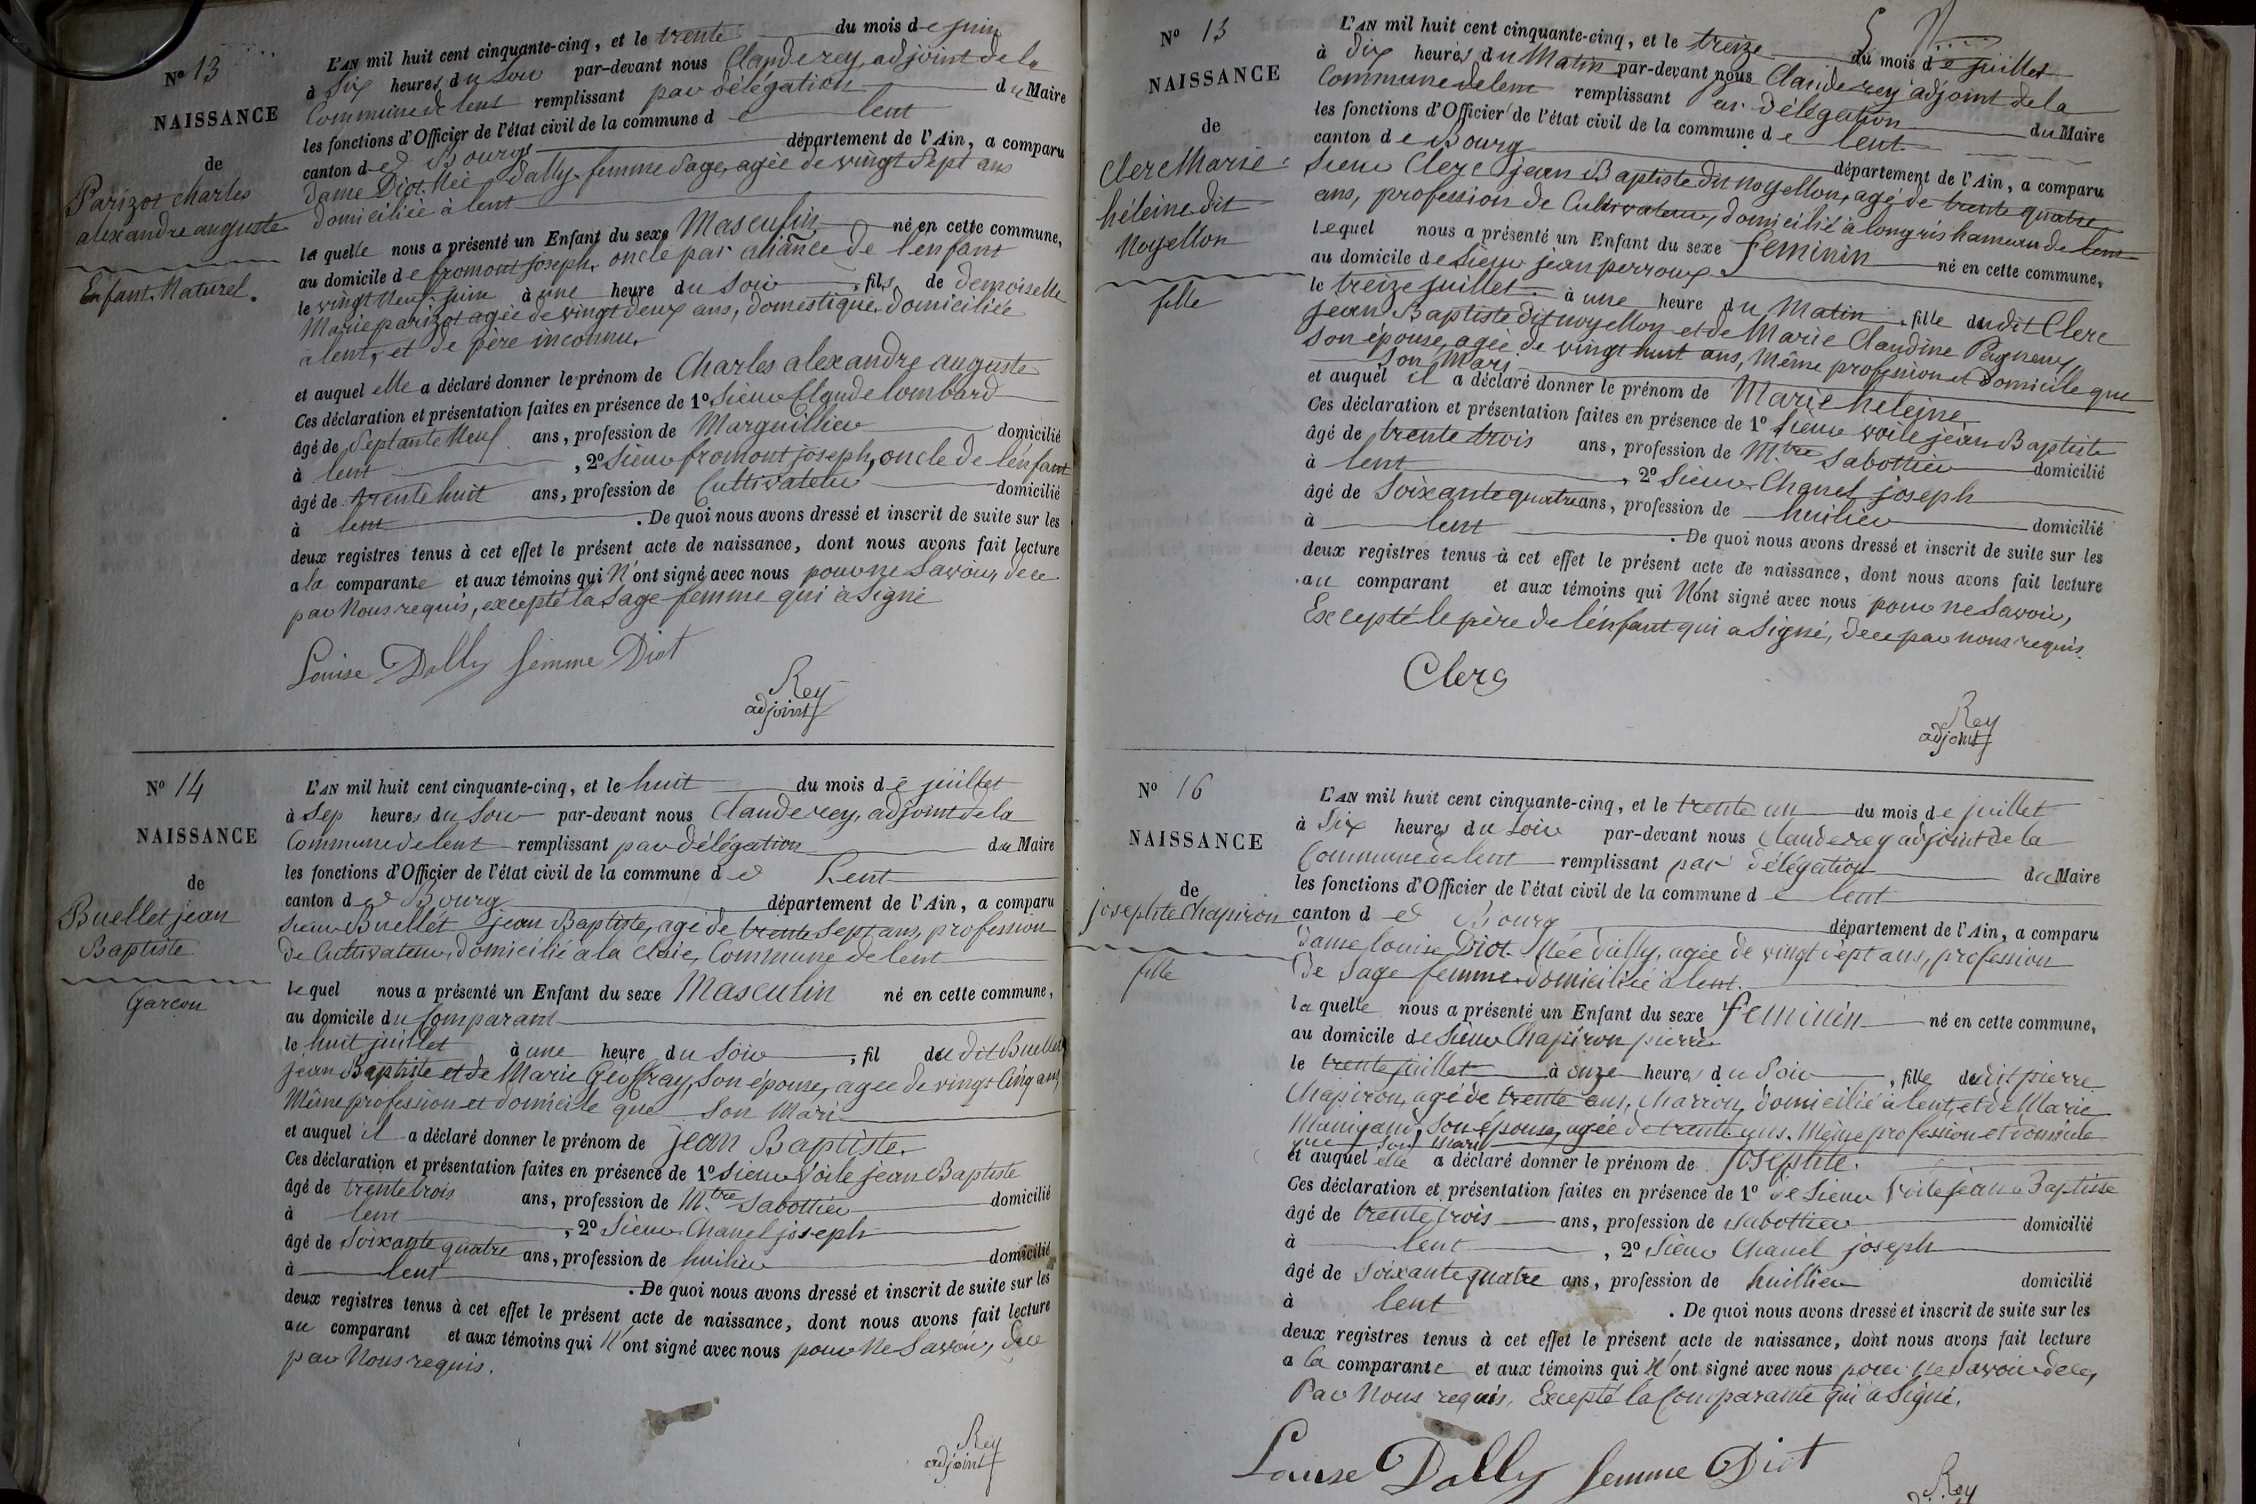 Nº 13
NAISSANCE
de
Parizot charles
alexandre auguste
Enfant Naturel.
L'AN mil huit cent cinquante-cinq, et le trente du mois de juin
à Six heures du Soir par-devant nous Claude rey, adjoint de la
Commune de lent remplissant par délégation du Maire
les fonctions d'Officier de l'état civil de la commune de lent
canton de Bourg département de l'Ain, a comparu
Dame Diot Née Dally, femme Sage, agée de vingt Sept ans
domiciliée à lent
la quelle nous a présenté un Enfant du sexe Masculin né en cette commune,
au domicile de fromont joseph, oncle par aliance de l'enfant
le vingt Neuf juin à une heure du Soir, fils de demoiselle
Marie parizot agée de vingt deux ans, domestique, domiciliée
a lent, et de père inconnu.
et auquel elle a déclaré donner le prénom de Charles alexandre auguste
Ces déclaration et présentation faites en présence de 1º Sieur Claude lombard
âgé de Septante Neuf ans, profession de Marguillier domicilié
à lent, 2º Sieur fromont joseph, oncle de l'enfant
âgé de trente huit ans, profession de Cultivateur domicilié
à lent. De quoi nous avons dressé et inscrit de suite sur les
deux registres tenus à cet effet le présent acte de naissance, dont nous avons fait lecture
a la comparante et aux témoins qui N'ont signé avec nous pour ne Savoir, de ce
par Nous requis, excepté la Sage femme qui a Signé
Louise Dally femme Diot
Rey
adjoint
Nº 14
NAISSANCE
de
Buellet jean
Baptiste
garçon
L'AN mil huit cent cinquante-cinq, et le huit du mois de juillet
à Sep heures du Soir par-devant nous Claude rey, adjoint de la
Commune de lent remplissant par délégation du Maire
les fonctions d'Officier de l'état civil de la commune de Lent
canton de Bourg département de l'Ain, a comparu
Sieur Buellet jean Baptiste, agé de trente Sept ans, profession
de Cultivateur, domicilié a la Commune de lent
lequel nous a présenté un Enfant du sexe Masculin né en cette commune,
au domicile du Comparant
le huit juillet à une heure du Soir, fil du dit Buellet
jean Baptiste et de Marie Geoffray, Son épouse, agée de vingt Cinq ans,
Même profession et domicile que Son Mari
et auquel il a déclaré donner le prénom de jean Baptiste.
Ces déclaration et présentation faites en présence de 1º Sieur Voile jean Baptiste
âgé de trente trois ans, profession de M.tre Sabottier domicilié
à lent, 2º Sieur Chanel joseph
âgé de Soixante quatre ans, profession de huilier domicilié
à lent. De quoi nous avons dressé et inscrit de suite sur les
deux registres tenus à cet effet le présent acte de naissance, dont nous avons fait lecture
au comparant et aux témoins qui N'ont signé avec nous pour Ne Savoir, de ce
par Nous requis.
Rey
adjoint
Nº 13
NAISSANCE
de
Clerc Marie
héleine dit
Noyellon
fille
L'AN mil huit cent cinquante-cinq, et le treize du mois de juillet
à dix heures du Matin par-devant nous Claude rey adjoint de la
Commune de lent remplissant par délégation du Maire
les fonctions d'Officier de l'état civil de la commune de lent
canton de Bourg département de l'Ain, a comparu
Sieur Clerc jean Baptiste dit Noyellon, agé de trente quatre
ans, profession de Cultivateur, domicilié à longris hameau de lent
lequel nous a présenté un Enfant du sexe feminin né en cette commune,
au domicile de Sieur jean perroux
le treize juillet à une heure du Matin, fille du dit Clerc
jean Baptiste dit noyellon et de Marie Claudine
Son épouse, agée de vingt huit ans, Même profession et domicile que
Son Mari
et auquel il a déclaré donner le prénom de Marie heleine
Ces déclaration et présentation faites en présence de 1º Sieur voile jean Baptiste
âgé de trente trois ans, profession de M.tre Sabottier domicilié
à lent, 2º Sieur Chanel joseph
âgé de Soixante quatre ans, profession de huilier domicilié
à lent. De quoi nous avons dressé et inscrit de suite sur les
deux registres tenus à cet effet le présent acte de naissance, dont nous avons fait lecture
au comparant et aux témoins qui N'ont signé avec nous pour ne Savoir,
Excepté le père de l'enfant qui a Signé, de ce par nous requis.
Clerc
Rey
adjoint
Nº 16
NAISSANCE
de
josephte Chapiron
fille
L'AN mil huit cent cinquante-cinq, et le trente un du mois de juillet
à Six heures du Soir par-devant nous Claude rey adjoint de la
Commune de lent remplissant par délégation du Maire
les fonctions d'Officier de l'état civil de la commune de lent
canton de Bourg département de l'Ain, a comparu
Dame louise Diot Née Dally, agée de vingt Sept ans, profession
de Sage femme domiciliée a lent.
la quelle nous a présenté un Enfant du sexe feminin né en cette commune,
au domicile de Sieur Chapiron pierre
le trente juillet à onze heures du Soir, fille du dit pierre
Chapiron, agé de trente ans, Charron, domicilié à lent, et de Marie
Son épouse, agée de trente ans, Même profession et domicile
que Son Mari
et auquel elle a déclaré donner le prénom de josephte.
Ces déclaration et présentation faites en présence de 1º de Sieur Voile jean Baptiste
âgé de trente trois ans, profession de Sabottier domicilié
à lent, 2º Sieur Chanel joseph
âgé de Soixante quatre ans, profession de huillier domicilié
à lent. De quoi nous avons dressé et inscrit de suite sur les
deux registres tenus à cet effet le présent acte de naissance, dont nous avons fait lecture
a la comparante et aux témoins qui N'ont signé avec nous pour Ne Savoir de ce,
Par Nous requis, Excepté la Comparante qui a Signé.
Louise Dally femme Diot
Rey